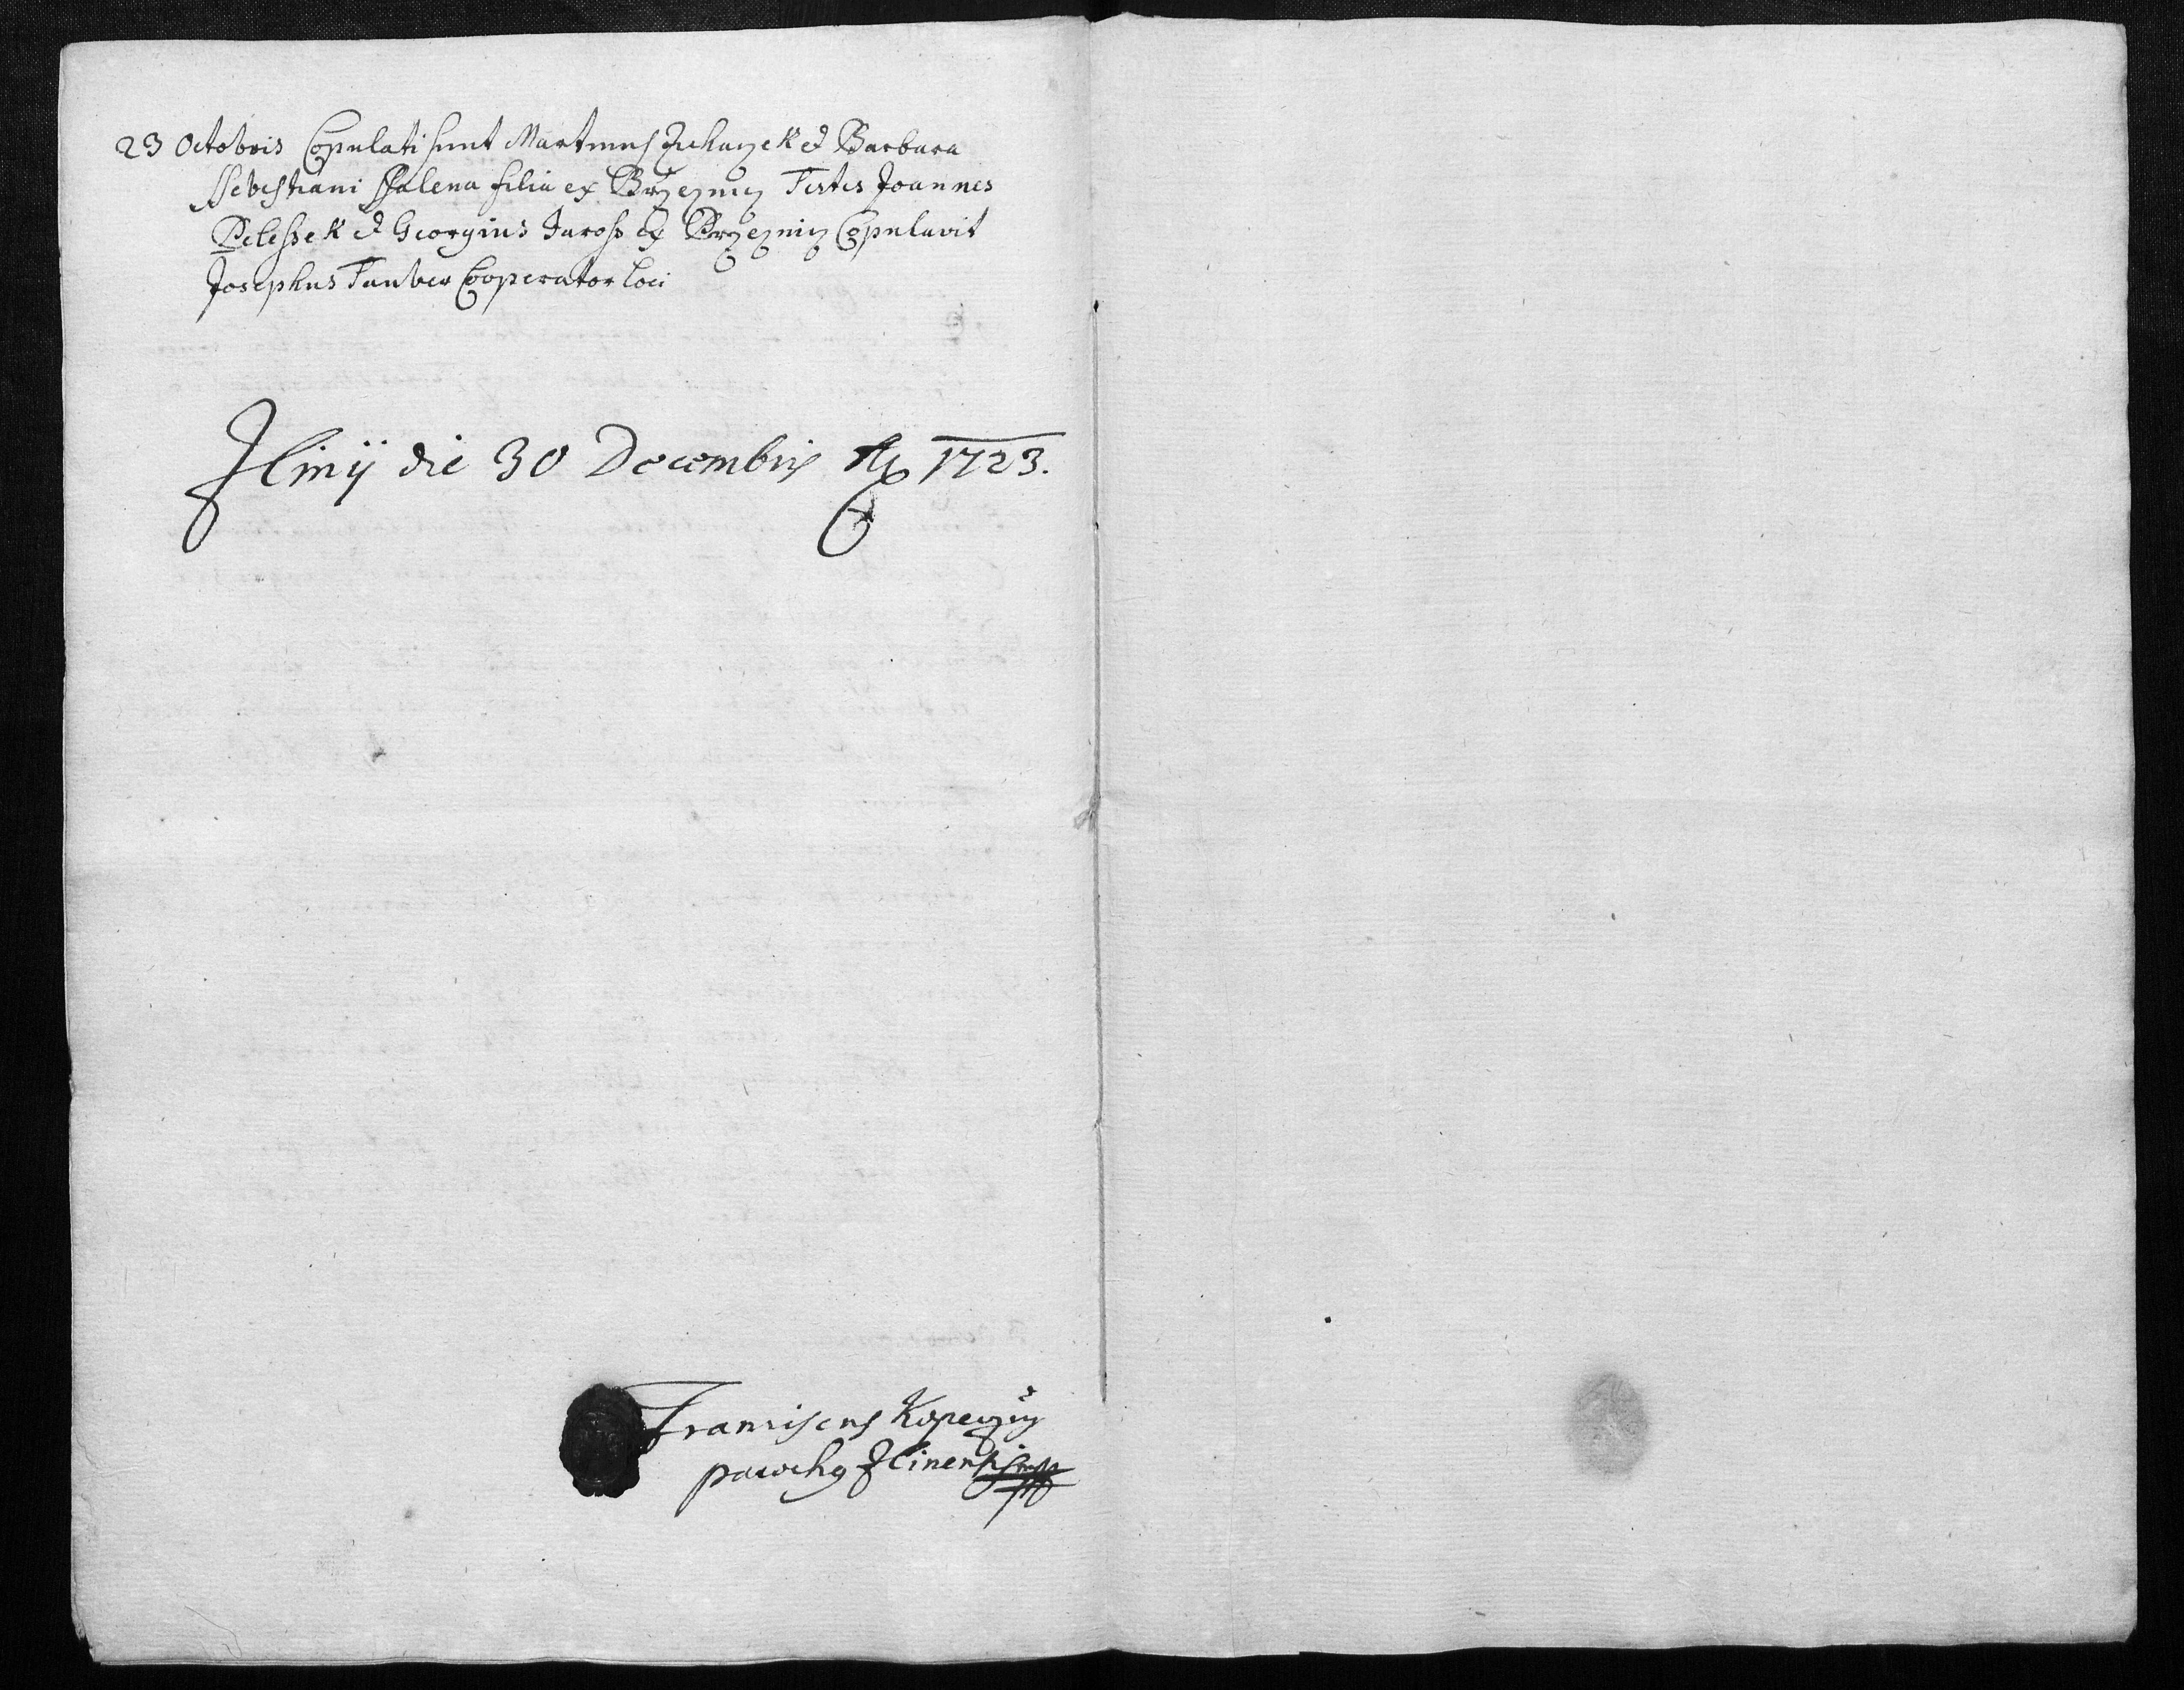 23 Octobris Copulati sunt Martinus Zichaczek et Barbara
Sebestiani filia ex Brzeznicz Testes Joannes
Pelessek et Georgius Jaross ex Brzeznicz Copulavit
Josephus Tauber Cooperator loci
Zlinÿ die 30 Decembris 1723.
Franciscus Kopeczny
parochus Zlinensis